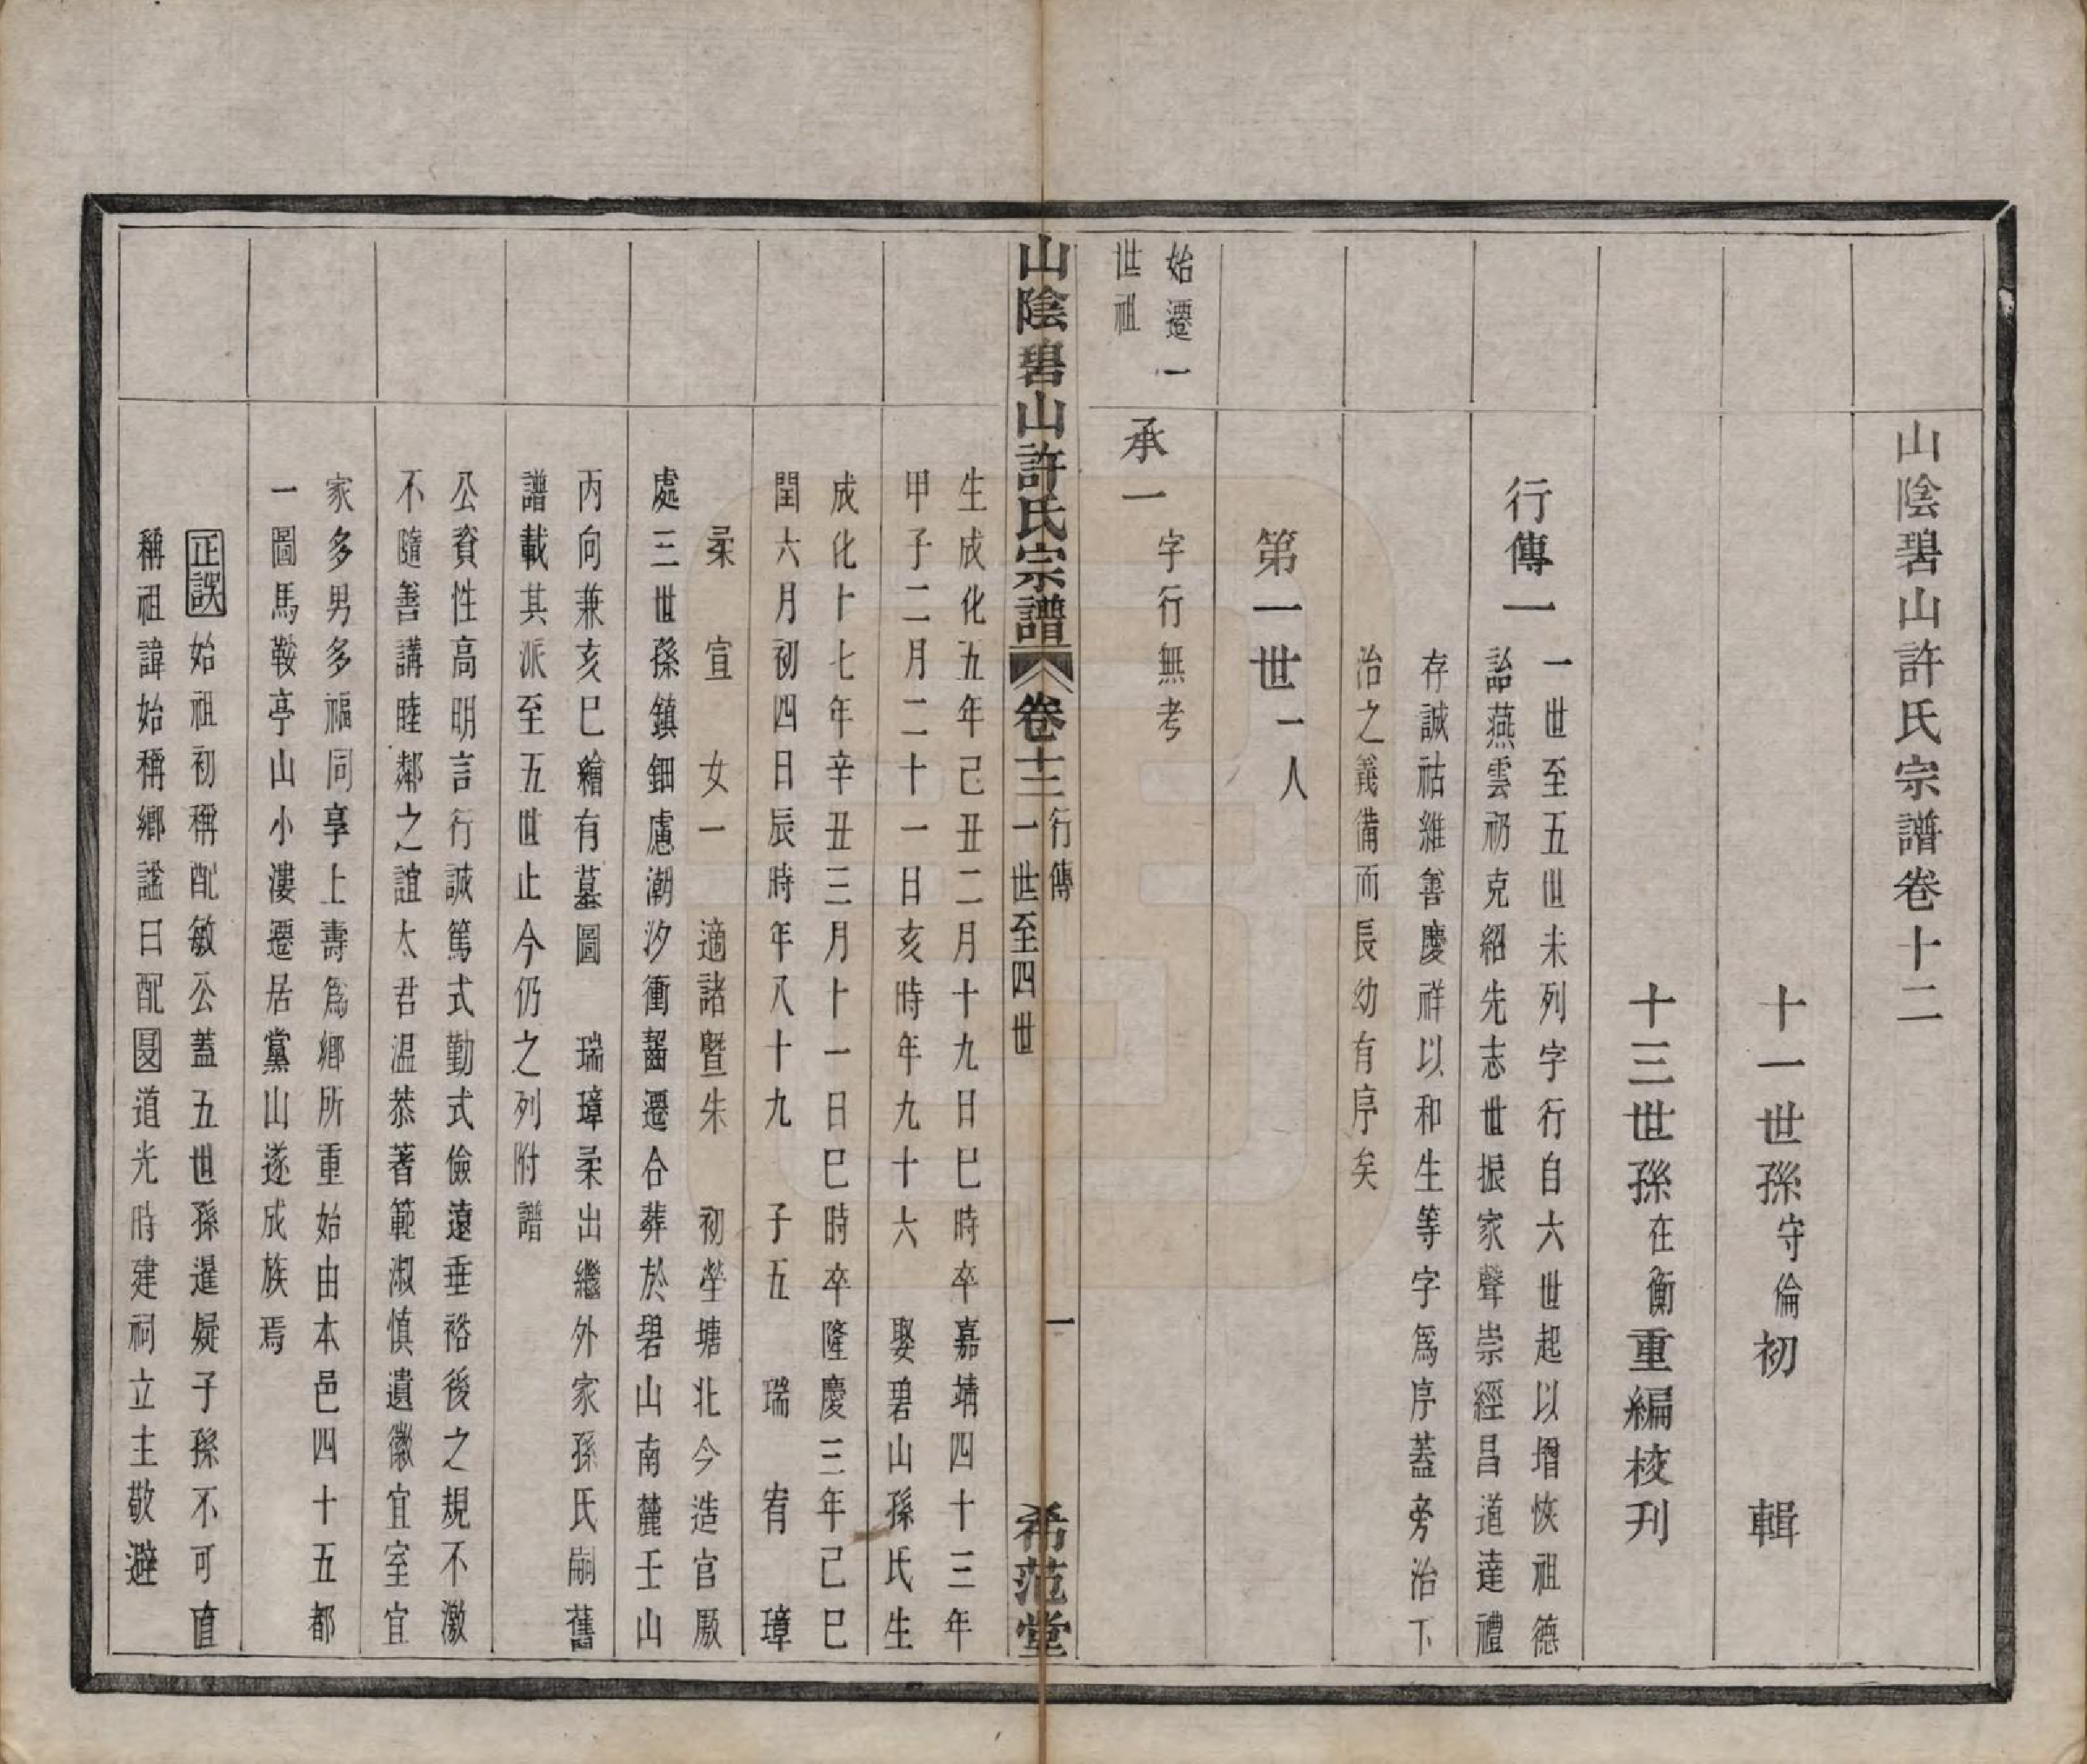 山陰碧山許氏宗譜卷十二
十一世孫守倫初 輯
十三世孫在衡重編校刊
行傳一
一世至五世未列字行自六世起以增恢祖德
詒燕雲礽克紹先志世振家聲崇經昌道達禮
存誠祜維善慶祥以和生等字爲序蓋旁治下
治之義備而長幼有序矣
第一世一人
始遷一
世祖
承一
字行無考
山陰碧山許氏宗譜 卷十二 行傳 一世至四世 一 希范堂
生成化五年己丑二月十九日巳時卒嘉靖四十三年
甲子二月二十一日亥時年九十六 娶碧山孫氏生
成化十七年辛丑三月十一日巳時卒隆慶三年己巳
閏六月初四日辰時年八十九 子五 瑞 宥 璋
柔 宣 女一 適諸暨朱 初塋塘北今造官厫
處三世孫鎮鈿慮潮汐衝齧遷合葬於碧山南麓壬山
丙向兼亥巳繪有墓圖 瑞璋柔出繼外家孫氏嗣舊
譜載其派至五世止今仍之列附譜
公資性高明言行誠篤式勤式儉遠垂裕後之規不激
不隨善講睦鄰之誼太君温恭著範淑慎遺徽宜室宜
家多男多福同享上壽爲鄉所重始由本邑四十五都
一圖馬鞍亭山小漊遷居黨山遂成族焉
正誤 始祖初稱配敏公蓋五世孫暹疑子孫不可直
稱祖諱始稱鄉謚曰配 道光時建祠立主敬避